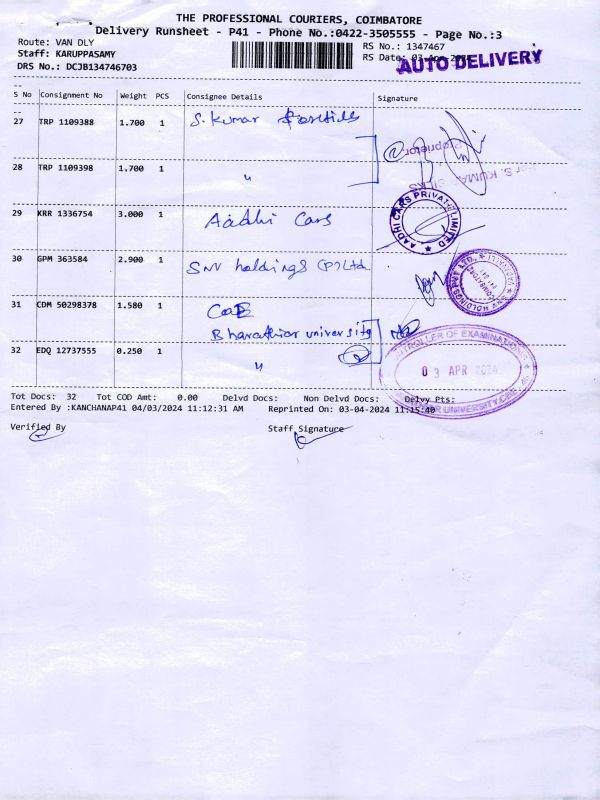 THE PROFESSIONAL COURIERS, COIMBATORE
Delivery Runsheet - P41 - Phone No.:0422-3505555 - Page No.:3
Route: VAN DLY
Staff: KARUPPASAMY
DRS No.: DCJB134746703
RS No.: 1347467
RS Date: 03-Apr-2024
AUTO DELIVERY
S No Consignment No Weight PCS Consignee Details Signature
27 TRP 1109388 1.700 1 S. Kumar
Proprietor
28 TRP 1109398 1.700 1 "
For S. KUMAR
29 KRR 1336754 3.000 1 Aadhi Cars
AADHI CARS PRIVATE LIMITED
30 GPM 363584 2.900 1 SNV holdings (P) Ltd
SNV HOLDINGS PVT LTD.
COIMBATORE
31 CDM 50298378 1.580 1 CoE
Bharathiar university
32 EDQ 12737555 0.250 1 "
2
CONTROLLER OF EXAMINATIONS
03 APR 2024
BHARATHIAR UNIVERSITY, CBE - 46
Tot Docs: 32 Tot COD Amt: 0.00 Delvd Docs: Non Delvd Docs: Delvy Pts:
Entered By :KANCHANAP41 04/03/2024 11:12:31 AM Reprinted On: 03-04-2024 11:15:40
Verified By Staff Signature